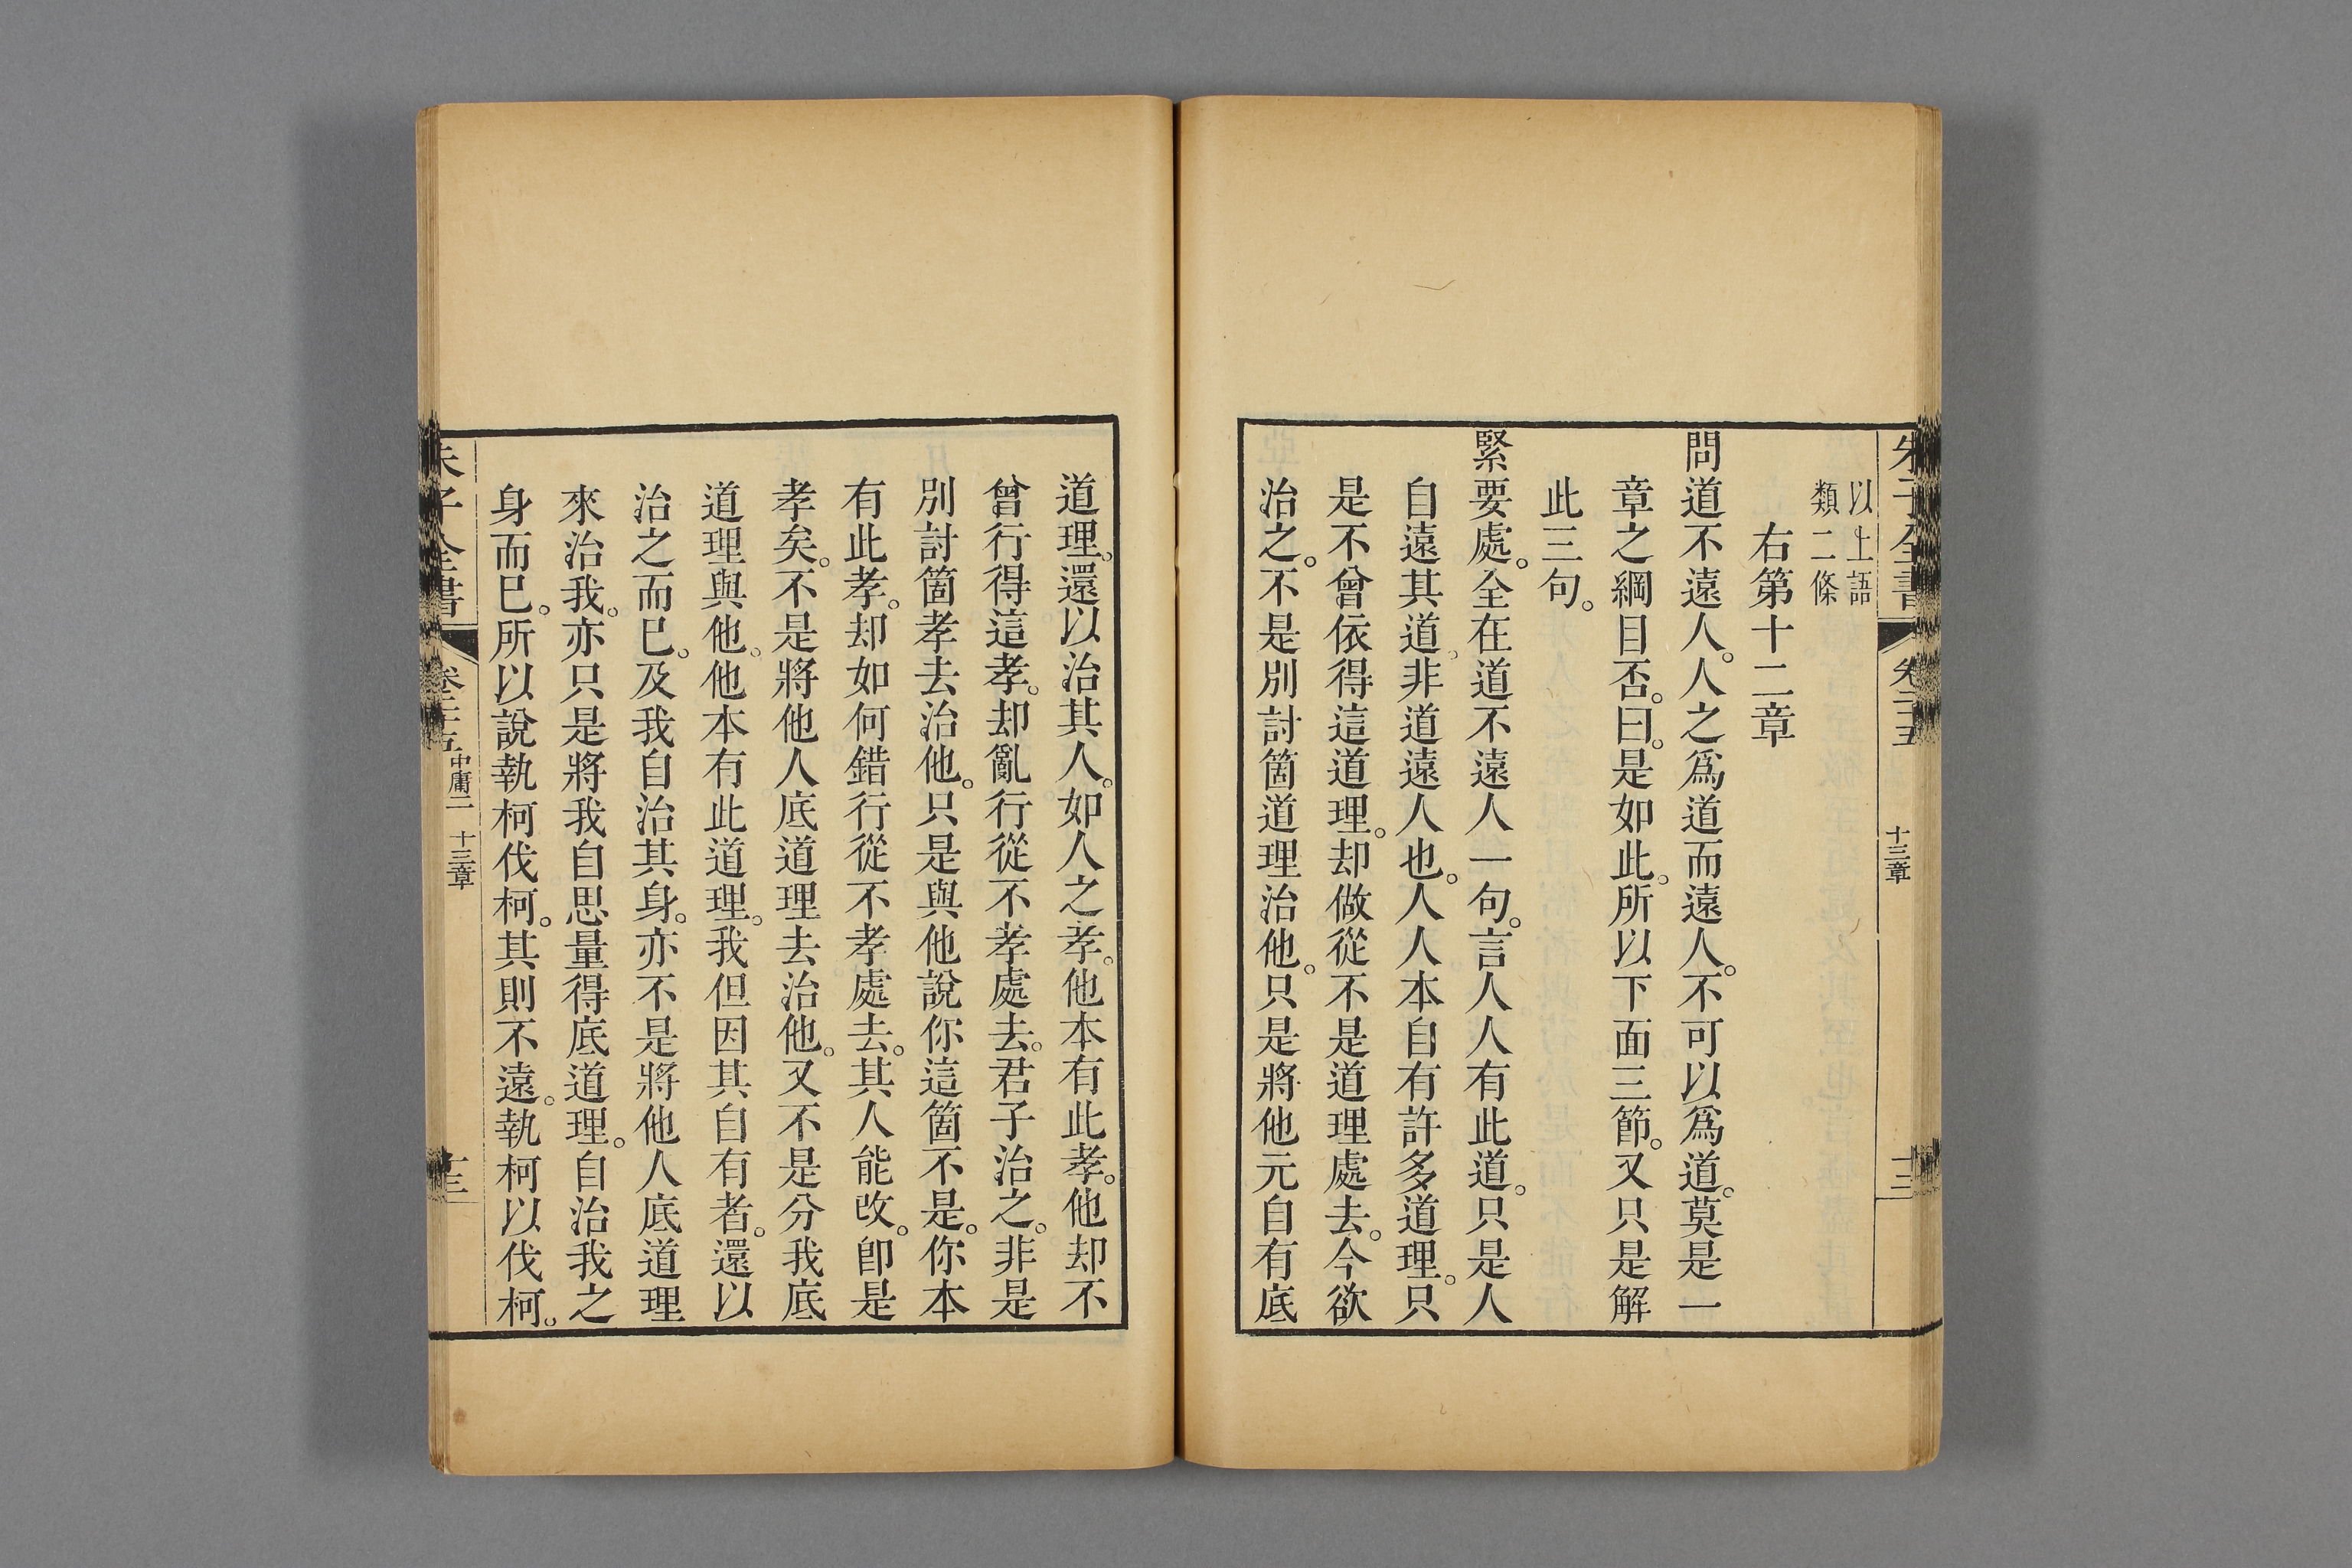 朱子全書 卷二十五 十三章 十三
以上語
類二條
右第十二章
問道不遠人。人之爲道而遠人。不可以爲道。莫是一
章之綱目否。曰。是如此。所以下面三節。又只是解
此三句。
緊要處。全在道不遠人一句。言人人有此道。只是人
自遠其道。非道遠人也。人人本自有許多道理。只
是不曾依得這道理。却做從不是道理處去。今欲
治之。不是別討箇道理治他。只是將他元自有底
道理。還以治其人。如人之孝。他本有此孝。他却不
曾行得這孝。却亂行從不孝處去。君子治之。非是
別討箇孝去治他。只是與他說你這箇不是。你本
有此孝。却如何錯行從不孝處去。其人能改。卽是
孝矣。不是將他人底道理去治他。又不是分我底
道理與他。他本有此道理。我但因其自有者。還以
治之而已。及我自治其身。亦不是將他人底道理
來治我。亦只是將我自思量得底道理。自治我之
身而已。所以說執柯伐柯。其則不遠。執柯以伐柯。
朱子全書 卷二十五 中庸二 十三章 十三